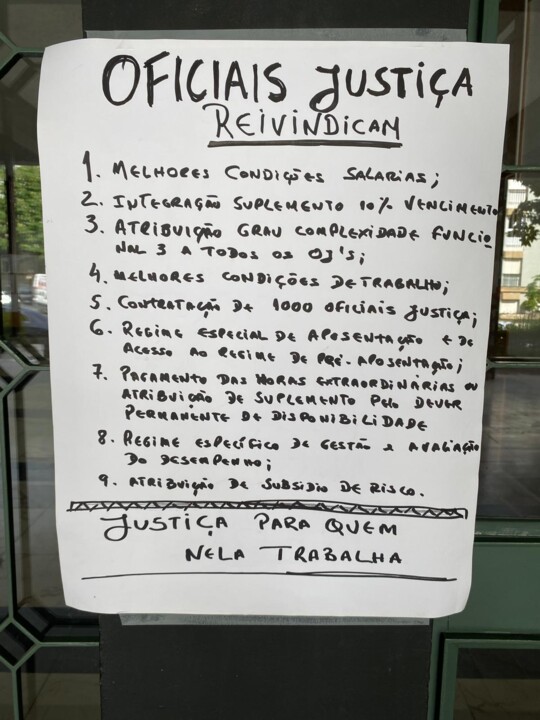 OFICIAIS JUSTIÇA
REIVINDICAM
1. MELHORES CONDIÇÕES SALARIAS;
2. INTEGRAÇÃO SUPLEMENTO 10% VENCIMENTO
3. ATRIBUIÇÃO GRAU COMPLEXIDADE FUNCIO
NAL 3 A TODOS OS OJ'S;
4. MELHORES CONDIÇÕES DE TRABALHO;
5. CONTRATAÇÃO DE 1000 OFICIAIS JUSTIÇA;
6. REGIME ESPECIAL DE APOSENTAÇÃO E DE
ACESSO AO REGIME DE PRÉ-APOSENTAÇÃO;
7. PAGAMENTO DAS HORAS EXTRAORDINÁRIAS OU
ATRIBUIÇÃO DE SUPLEMENTO PELO DEVER
PERMANENTE DE DISPONIBILIDADE
8. REGIME ESPECÍFICO DE GESTÃO E AVALIAÇÃO
DO DESEMPENHO;
9. ATRIBUIÇÃO DE SUBSIDIO DE RISCO.
JUSTIÇA PARA QUEM
NELA TRABALHA